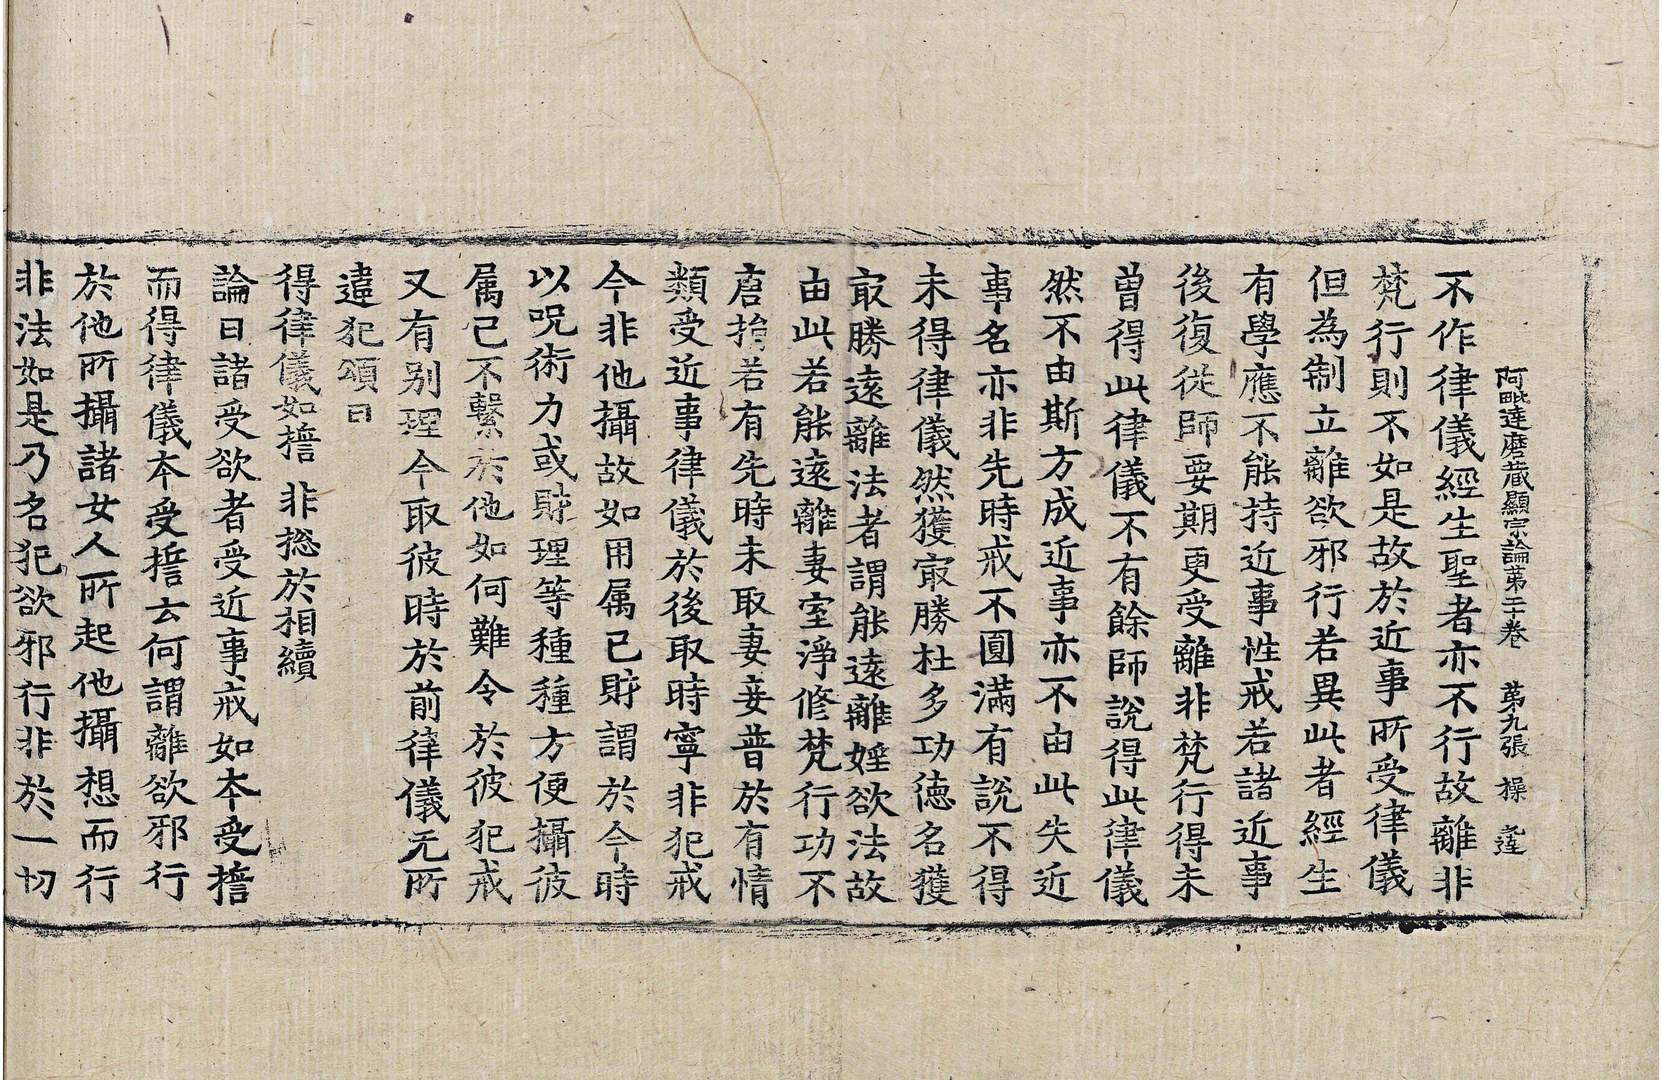 阿毗達磨藏顯宗論苐二十卷　苐九張　操
不作律儀經生聖者亦不行故離非
梵行則不如是故於近事所受律儀
但為制立離欲邪行若異此者經生
有學應不能持近事性戒若諸近事
後復從師要期更受離非梵行得未
曾得此律儀不有餘師說得此律儀
然不由斯方成近事亦不由此失近
事名亦非先時戒不圓滿有說不得
未得律儀然獲㝡勝杜多功德名獲
㝡勝遠離法者謂能遠離婬欲法故
由此若能遠離妻室淨修梵行功不
唐捐若有先時未取妻妾普於有情
類受近事律儀於後取時寧非犯戒
今非他攝故如用属已財謂於今時
以呪術力或財理等種種方便攝彼
属已不繫於他如何難令於彼犯戒
又有別理今取彼時於前律儀无所
違犯頌曰
得律儀如擔　非捴於相續
論曰諸受欲者受近事戒如本受擔
而得律儀本受誓云何謂離欲邪行
於他所攝諸女人所起他攝想而行
非法如是乃名犯欲邪行非於一切